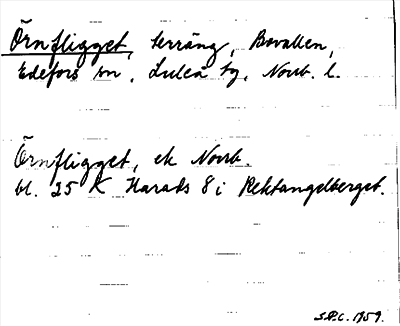 Örnfligget, terräng, Bovallen,
Edefors sn, Luleå tg, Norrb. l.
Örnfligget, ek Norrb.
bl. 25 K Harads 8 i Rektangelberget.
S.P.C. 1959.